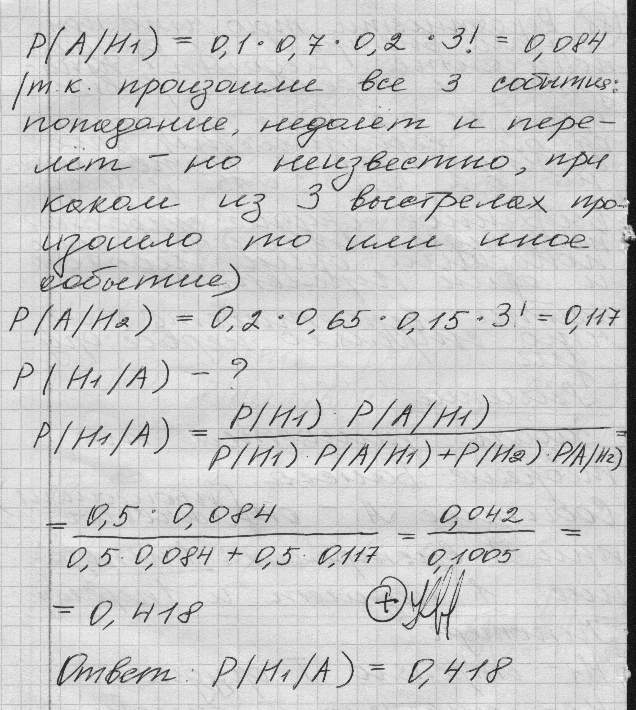 P(A/H1) = 0,1 · 0,7 · 0,2 · 3! = 0,084
/т.к. произошли все 3 события:
попадание, недолёт и пере-
лёт – но неизвестно, при
каком из 3 выстрелах про-
изошло то или иное
событие)
P(A/H2) = 0,2 · 0,65 · 0,15 · 3! = 0,117
P(H1/A) – ?
P(H1/A) = P(H1) · P(A/H1) / P(H1) · P(A/H1) + P(H2) · P(A/H2) =
= 0,5 · 0,084 / 0,5 · 0,084 + 0,5 · 0,117 = 0,042 / 0,1005 =
= 0,418
+
Ответ: P(H1/A) = 0,418